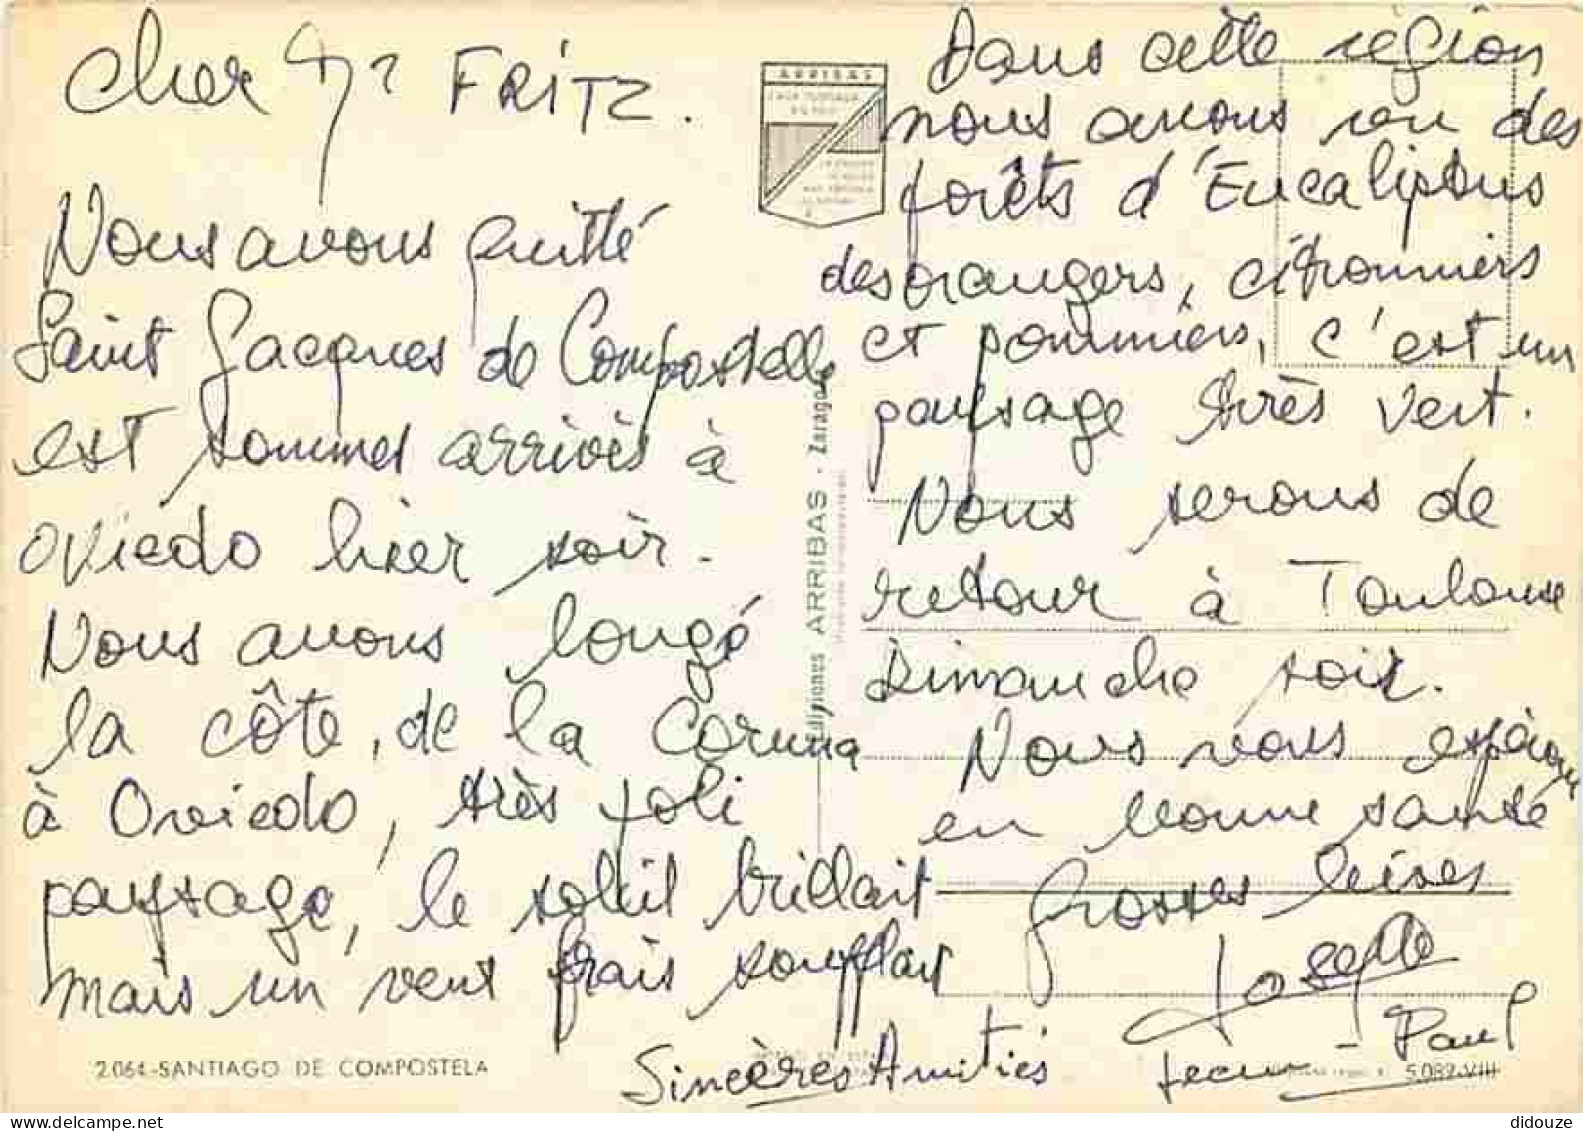 Cher Mr FRITZ.
Nous avons quitté
Saint Jacques de Compostelle
est sommes arrivés à
Oviedo hier soir.
Nous avons longé
la côte, de la Coruna
à Oviedo, très joli
paysage, le soleil brillait
mais un vent frais soufflait
Dans cette région
nous avons vu des
forêts d'Eucaliptus
des orangers, citronniers
et pommiers, c'est un
paysage très vert.
Nous serons de
retour à Toulouse
Dimanche soir.
Nous vous espérons
en bonne santé
Grosses bises
Josette
Sincères Amitiés
Jean-Paul
ARRIBAS
Ediciones ARRIBAS - Zaragoza
2.064-SANTIAGO DE COMPOSTELA
5.082-VIII
didouze